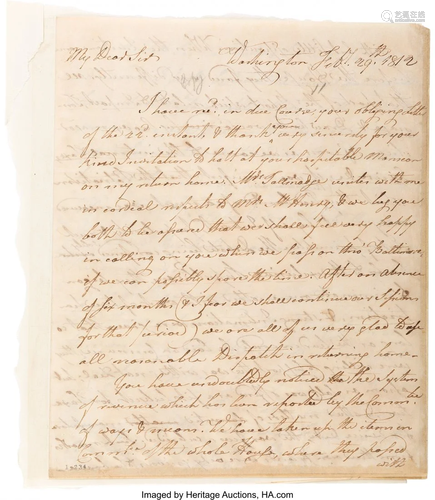 艺术在线
My Dear Sir
Washington Feb.y 29.th 1812
I have rec.d in due Course, your obliging letter
of the 22.d instant, & thank you very sincerely for your
kind Invitation to halt at your hospitable Mansion
on my return home. Mrs. Tallmadge unites with me
in cordial respects to Mrs. McHenry, & we beg you
both to be assured that we shall feel very happy
in calling on you when we pass on thro' Baltimore,
if we can possibly spare the time. After an absence
of six months (& I fear we shall continue our Session
for that period) we are all of us very glad to use
all reasonable Dispatch in returning home.
You have undoubtedly noticed the System
of revenue which has been reported by the Comm.ee
of ways & means. We have taken up the items in
Com.ee of the whole House, where they passed
with
Imaged by Heritage Auctions, HA.com